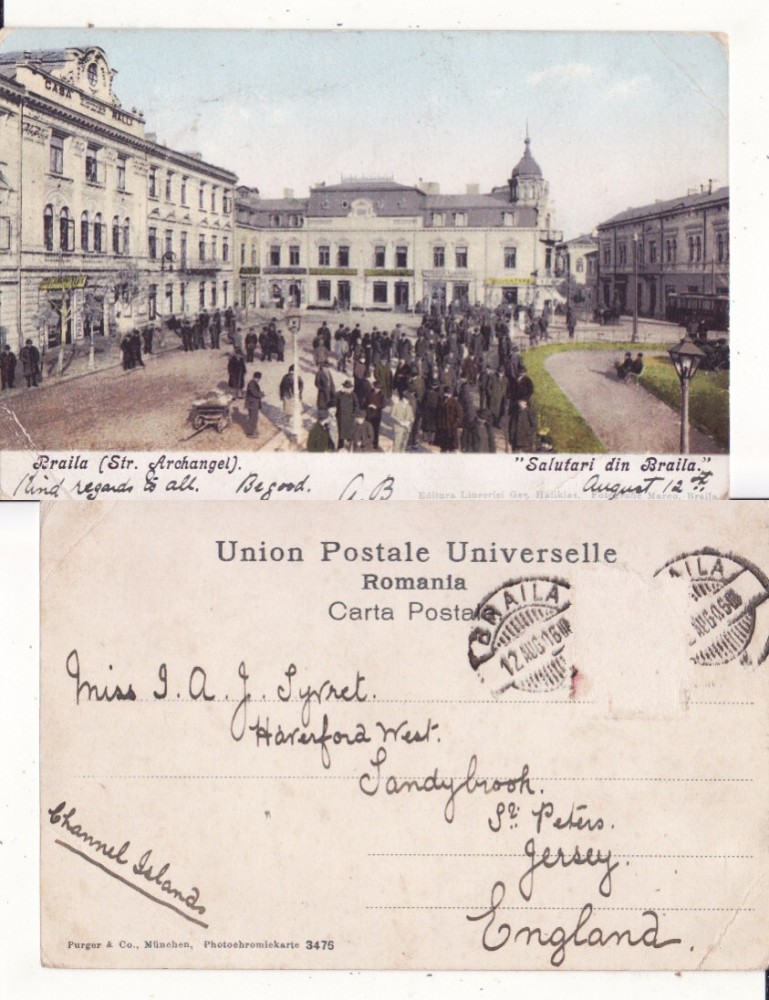 CASA RALLI
Braila (Str. Archangel).
"Salutari din Braila."
Kind regards to all. Be good. A B
August 12th
Editura Librariei Ger. Fotografie Marco, Braila
Union Postale Universelle
Romania
Carta Postala
BRAILA
12 AUG
AILA
AUG 05
Miss I. A. J. Syvret.
Haverford West.
Sandybrook.
St. Peters.
Jersey.
England.
Channel Islands
Purger & Co., München, Photochromiekarte 3475